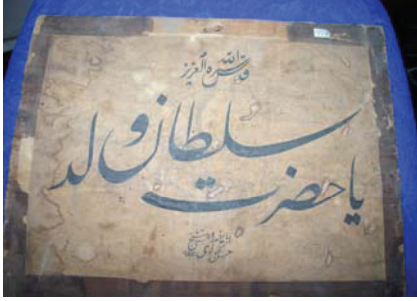 قدس الله سره العزيز
يا حضرت سلطان ولد